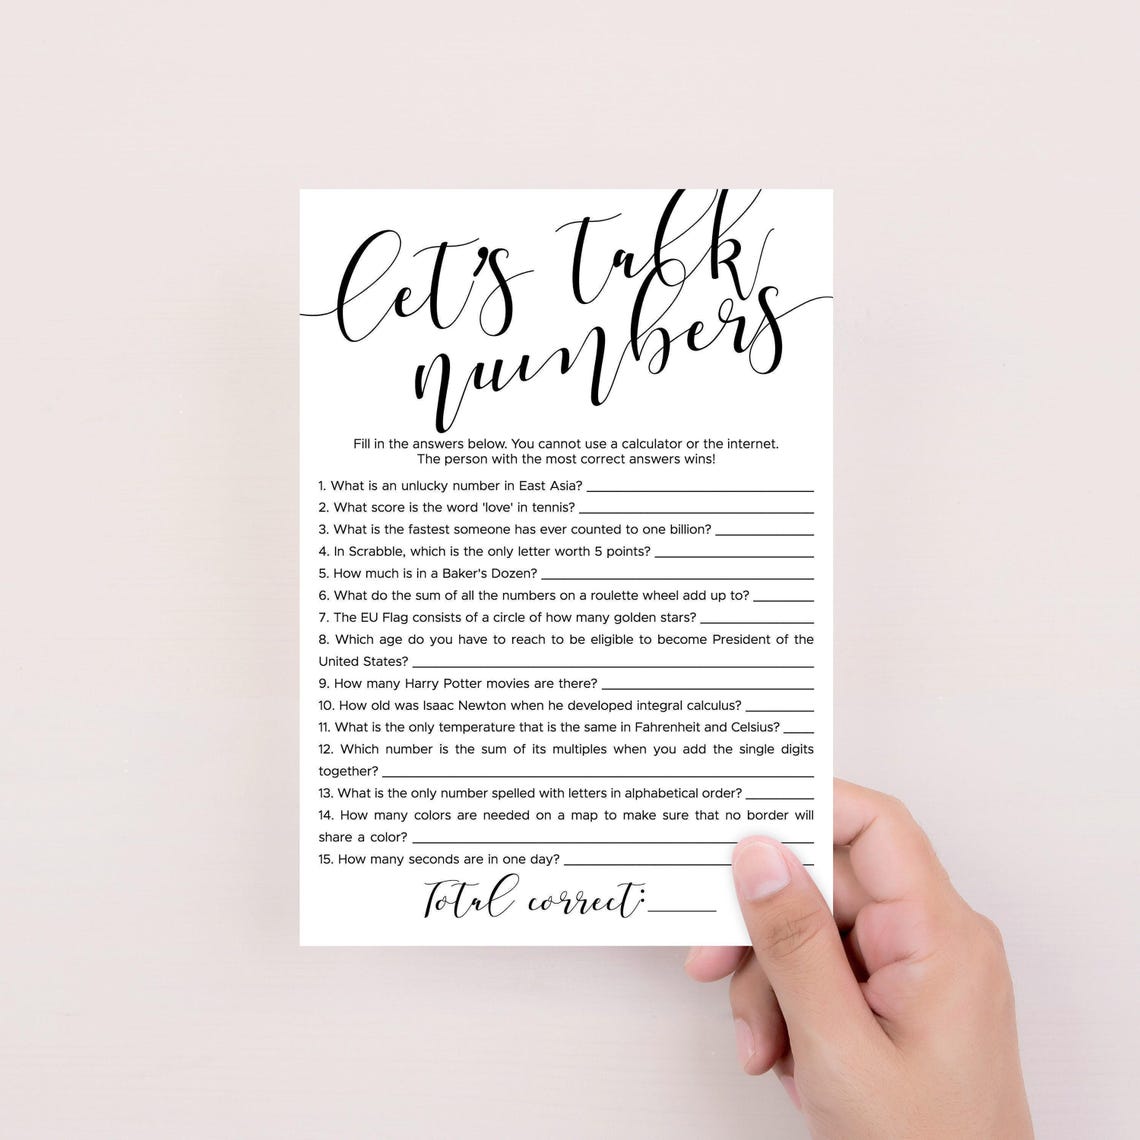 let's talk
numbers
Fill in the answers below. You cannot use a calculator or the internet.
The person with the most correct answers wins!
1. What is an unlucky number in East Asia? ______
2. What score is the word 'love' in tennis? ______
3. What is the fastest someone has ever counted to one billion? ______
4. In Scrabble, which is the only letter worth 5 points? ______
5. How much is in a Baker's Dozen? ______
6. What do the sum of all the numbers on a roulette wheel add up to? ______
7. The EU Flag consists of a circle of how many golden stars? ______
8. Which age do you have to reach to be eligible to become President of the
United States? ______
9. How many Harry Potter movies are there? ______
10. How old was Isaac Newton when he developed integral calculus? ______
11. What is the only temperature that is the same in Fahrenheit and Celsius? ______
12. Which number is the sum of its multiples when you add the single digits
together? ______
13. What is the only number spelled with letters in alphabetical order? ______
14. How many colors are needed on a map to make sure that no border will
share a color? ______
15. How many seconds are in one day? ______
Total correct: ______